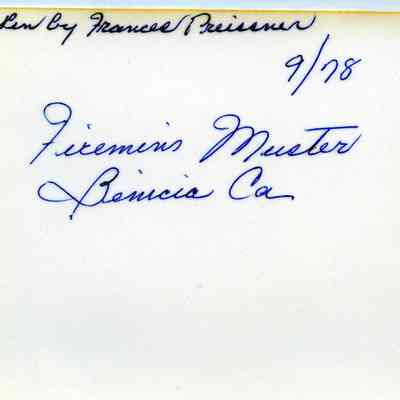 ken by Frances Preissner
9/78
Firemins Muster
Benicia Ca